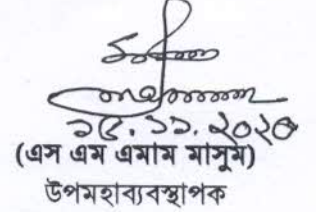 ১৫.১১.২০২০
(এস এম এমাম মাসুম)
উপমহাব্যবস্থাপক